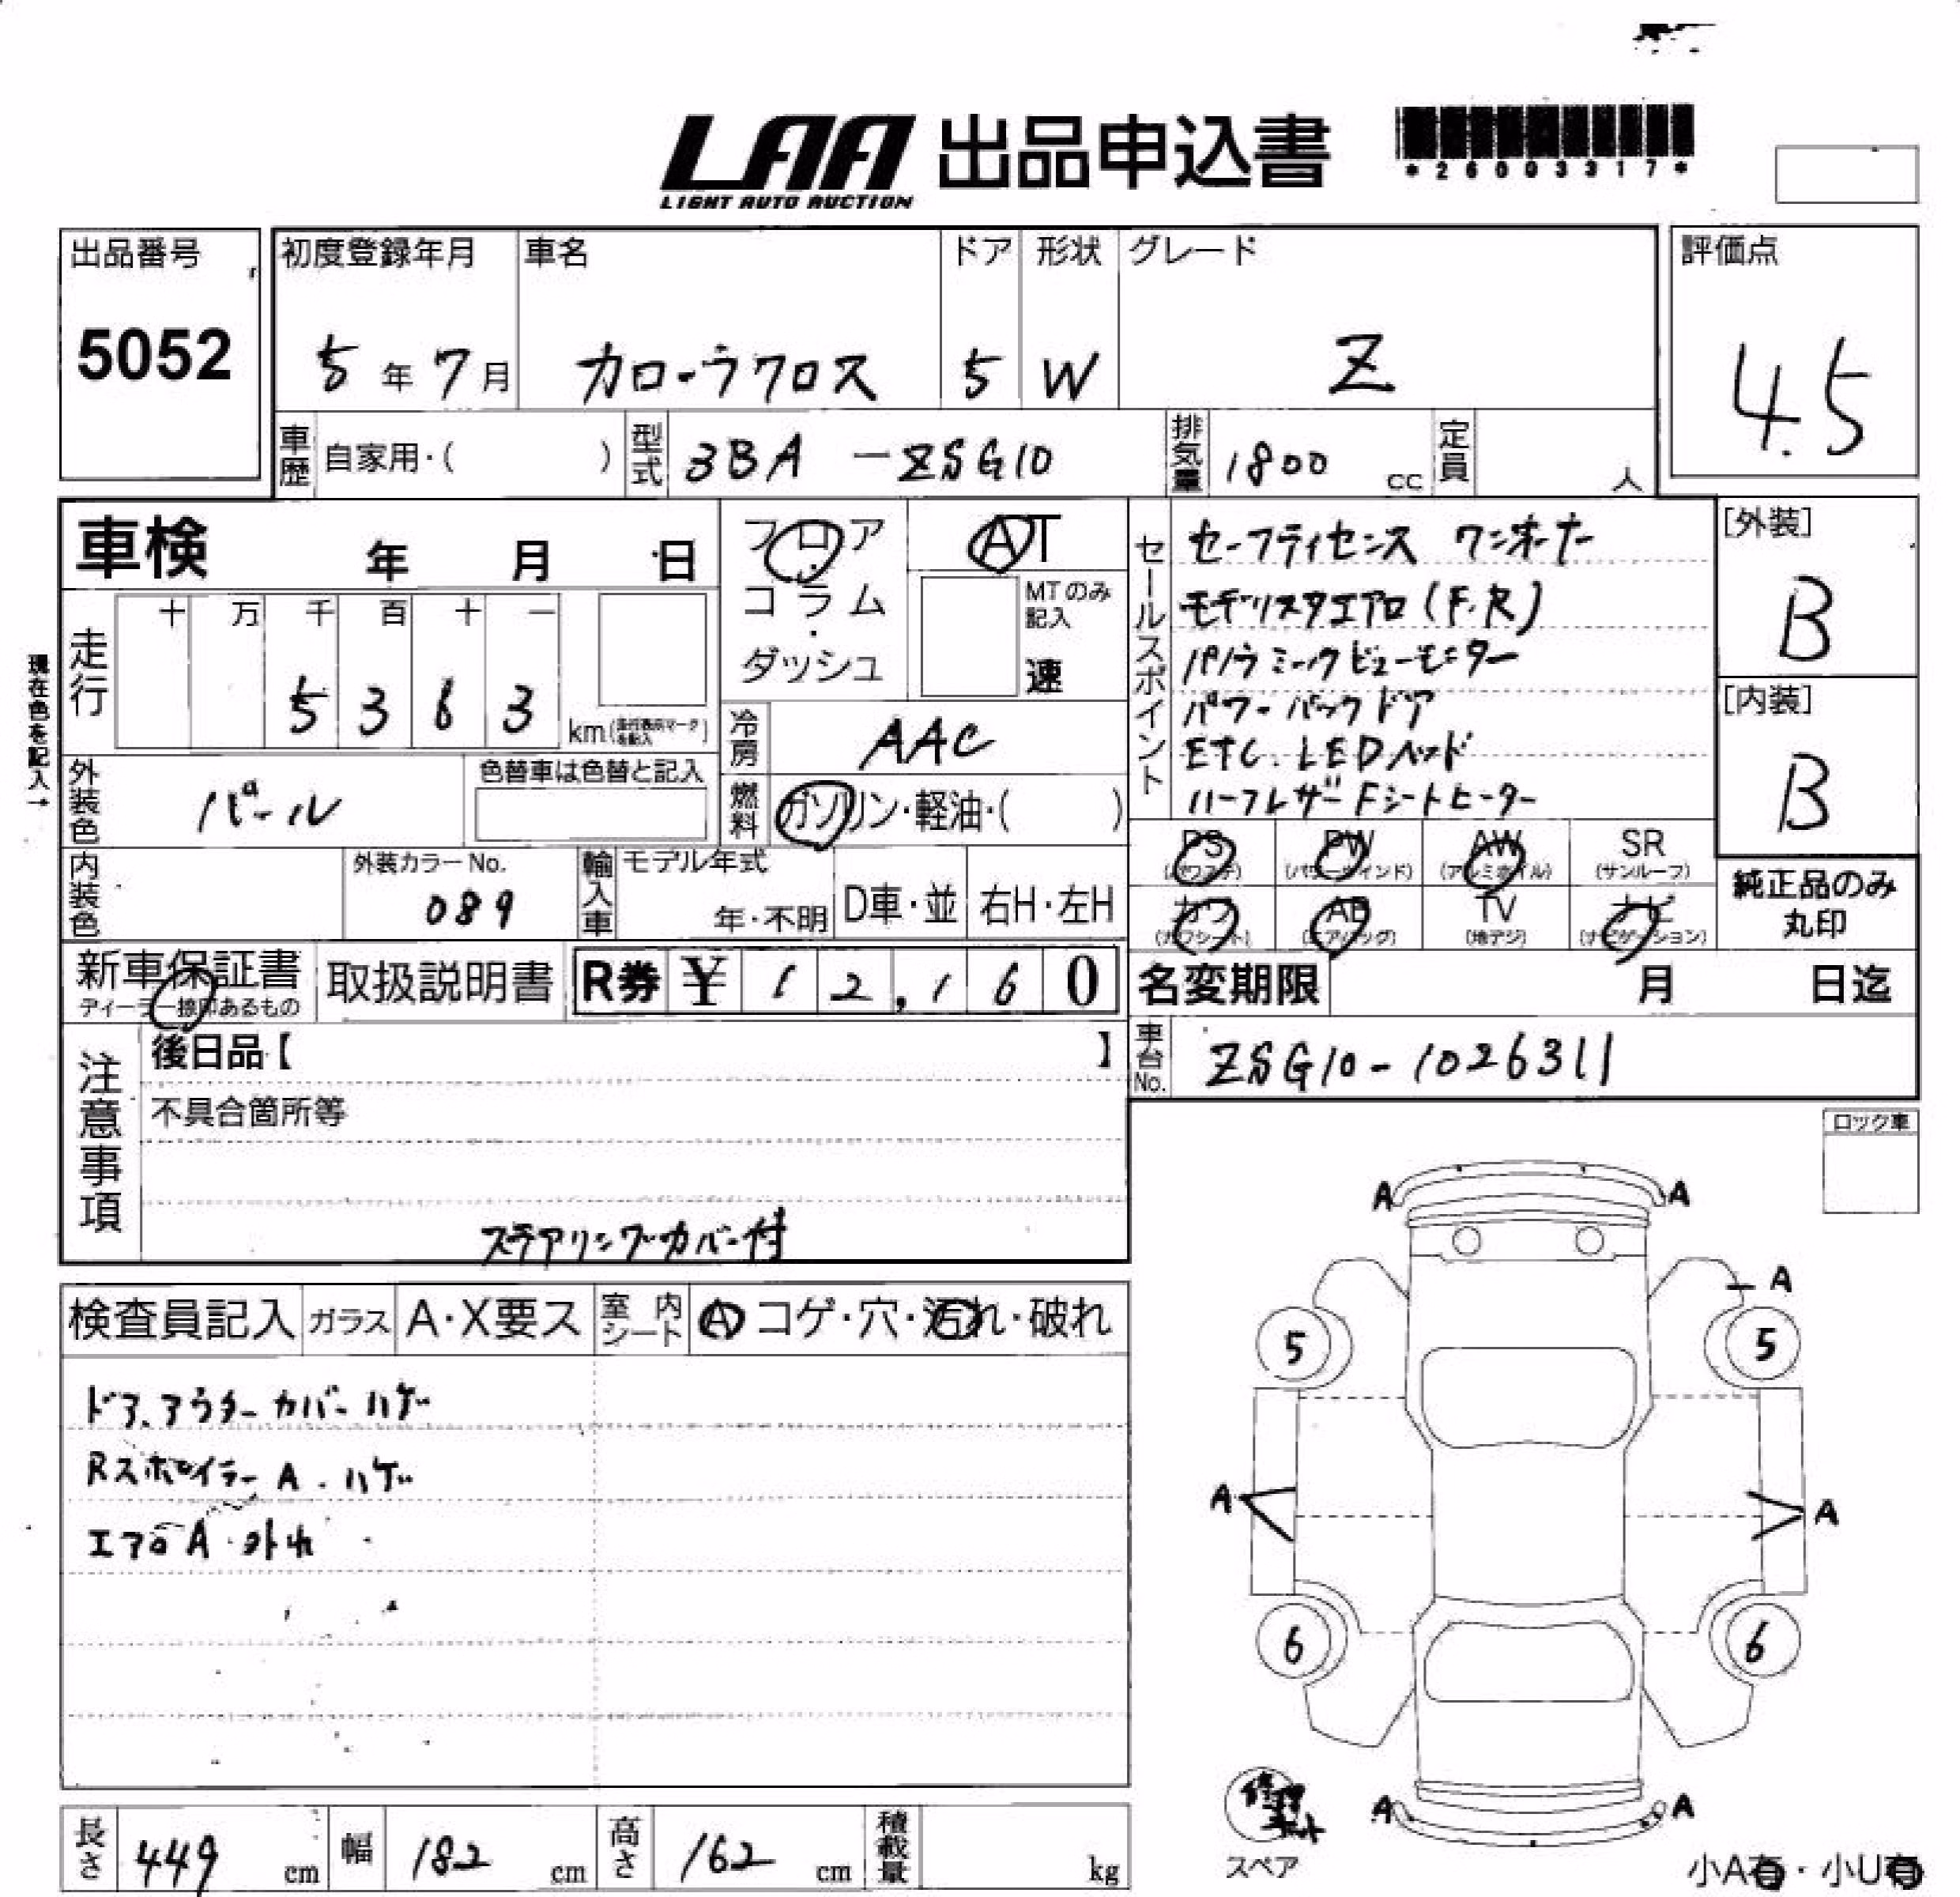 LAA 出品申込書
LIGHT AUTO AUCTION
*26003317*
出品番号 5052
初度登録年月 5年7月
車名 カローラクロス
ドア 5
形状 W
グレード Z
評価点 4.5
車歴 自家用・( )
型式 3BA-ZSG10
排気量 1800 cc
定員 人
車検 年 月 日
フロア・コラム・ダッシュ
AT
MTのみ記入 速
現在色を記入→
走行 十 万 千 百 十 一
5 3 6 3 km(走行表示マークを記入)
冷房 AAC
外装色 パール
色替車は色替と記入
燃料 ガソリン・軽油・( )
セールスポイント
セーフティセンス ワンオーナー
モデリスタエアロ(F.R)
パノラミックビューモニター
パワーバックドア
ETC. LEDヘッド
ハーフレザー Fシートヒーター
[外装] B
[内装] B
PS (パワステ) PW (パワーウィンド) AW (アルミホイル) SR (サンルーフ)
カワ (カワシート) AB (エアバッグ) TV (地デジ) ナビ (ナビゲーション)
純正品のみ丸印
内装色
外装カラーNo. 089
輸入車 モデル年式 年・不明 D車・並 右H・左H
新車保証書 ディーラー捺印あるもの
取扱説明書
R券 ¥12,160
名変期限 月 日迄
車台No. ZSG10-1026311
注意事項
後日品【 】
不具合箇所等
ステアリングカバー付
ロック車
検査員記入 ガラス A・X要ス 室内シート A コゲ・穴・汚れ・破れ
ドア.アウターカバーハゲ
Rスポイラー A.ハゲ
エアロA.外れ
A A
A
5 5
A A
6 6
A A
修理キット
スペア
小A有・小U有
長さ 449 cm 幅 182 cm 高さ 162 cm 積載量 kg